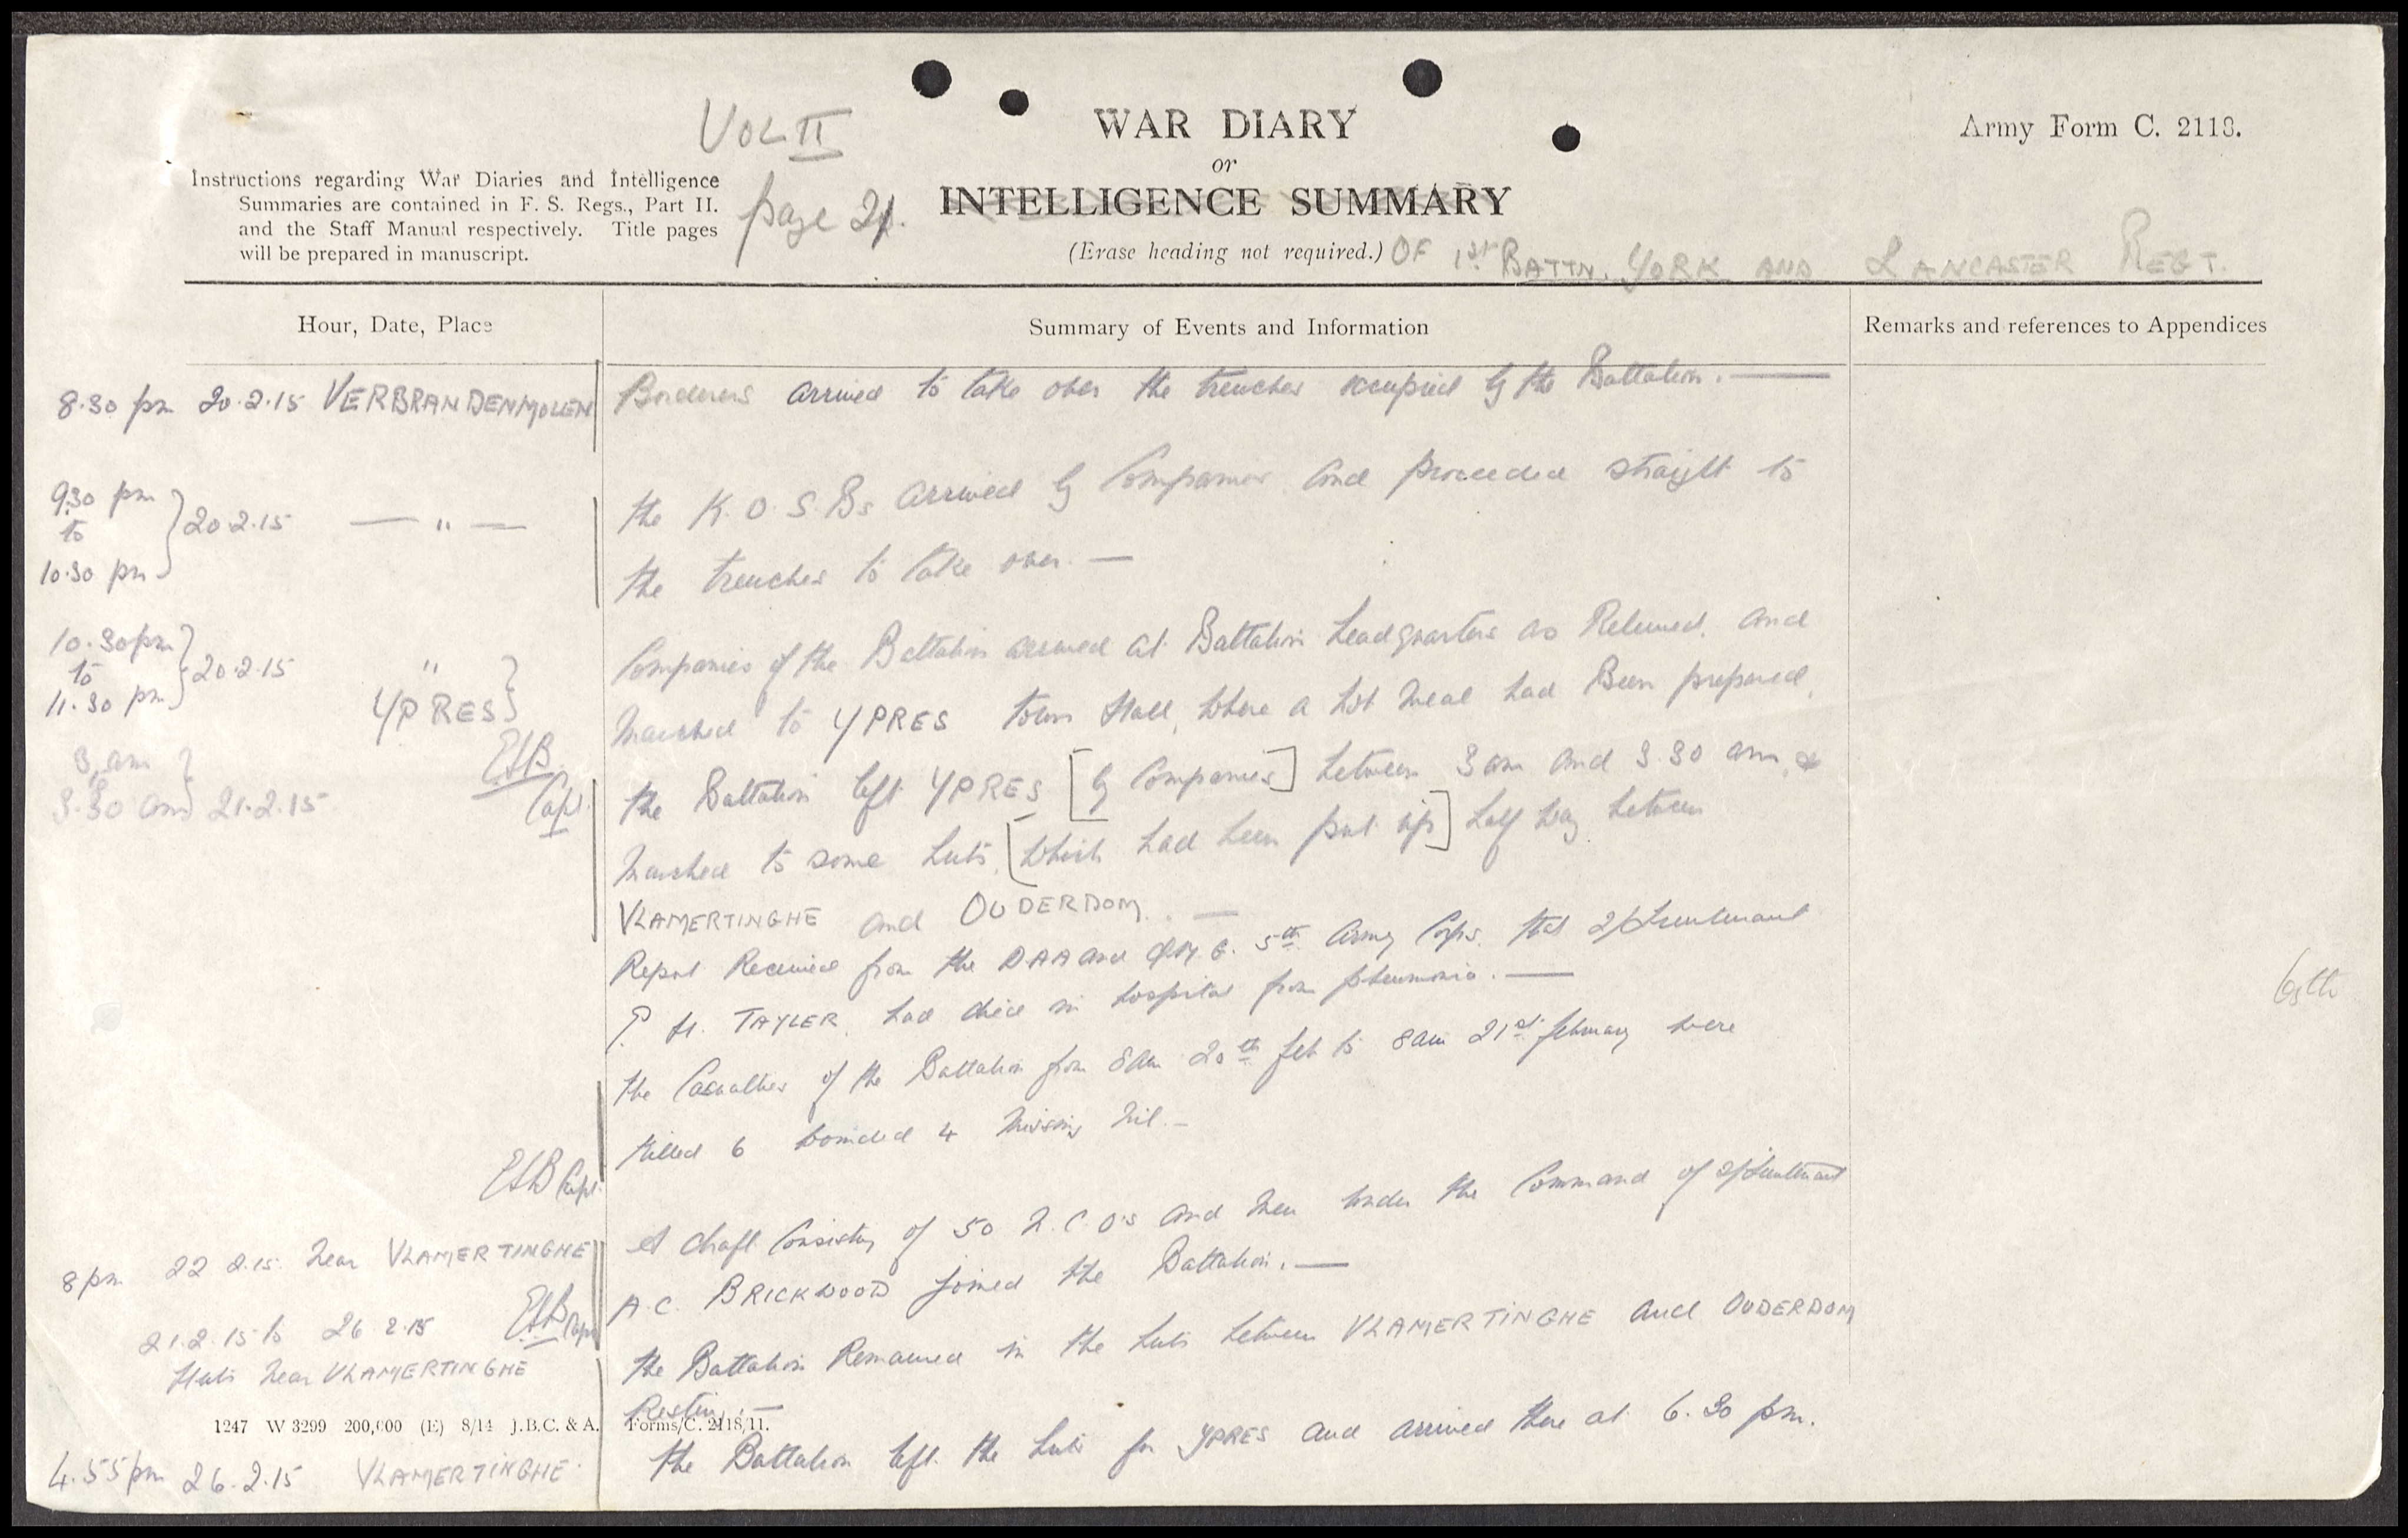 VOL II
WAR DIARY
Army Form C. 2118.
or
Instructions regarding War Diaries and Intelligence
Summaries are contained in F. S. Regs., Part II.
and the Staff Manual respectively. Title pages
will be prepared in manuscript.
page 21.
INTELLIGENCE SUMMARY
(Erase heading not required.) OF 1st BATTN. YORK AND LANCASTER REGT.
Hour, Date, Place
Summary of Events and Information
Remarks and references to Appendices
8.30 pm 20.2.15 VERBRANDENMOLEN
Borderers arrived to take over the trenches occupied by the Battalion. —
9.30 pm
to
10.30 pm
20.2.15 — " —
the K.O.S.Bs arrived by Companies and proceeded straight to
the trenches to take over. —
10.30 pm
to
11.30 pm
20.2.15 "
YPRES
Companies of the Battalion arrived at Battalion Headquarters as Relieved, and
marched to YPRES Town Hall, where a hot meal had Been prepared,
3 am
3.30 am 21.2.15
ELB
Capt.
the Battalion left YPRES [by Companies] between 3 am and 3.30 am, &
marched to some huts, [which had been put up] half way between
VLAMERTINGHE and OUDERDOM. —
Report Received from the DAA and QMG. 5th Army Corps, that 2/Lieutenant
P. H. TAYLER, had died in hospital from pneumonia. —
the Casualties of the Battalion from 8am 20th Feb to 8am 21st February were
Killed 6 wounded 4 Missing Nil. —
ELB Capt.
8 pm 22 2.15. Near VLAMERTINGHE
A draft Consisting of 50 N.C.O's and Men under the Command of 2/Lieutenant
A.C. BRICKWOOD joined the Battalion. —
ELB Capt
21.2.15 to 26 2.15
Huts Near VLAMERTINGHE
the Battalion Remained in the huts between VLAMERTINGHE and OUDERDOM
Resting. —
1247 W 3299 200,000 (E) 8/14 J.B.C. & A. Forms/C. 2118/11.
4.55 pm 26.2.15 VLAMERTINGHE.
the Battalion left the huts for YPRES and arrived there at 6.30 pm.